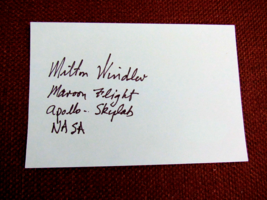 Milton Windler
Maroon Flight
Apollo - Skylab
NASA